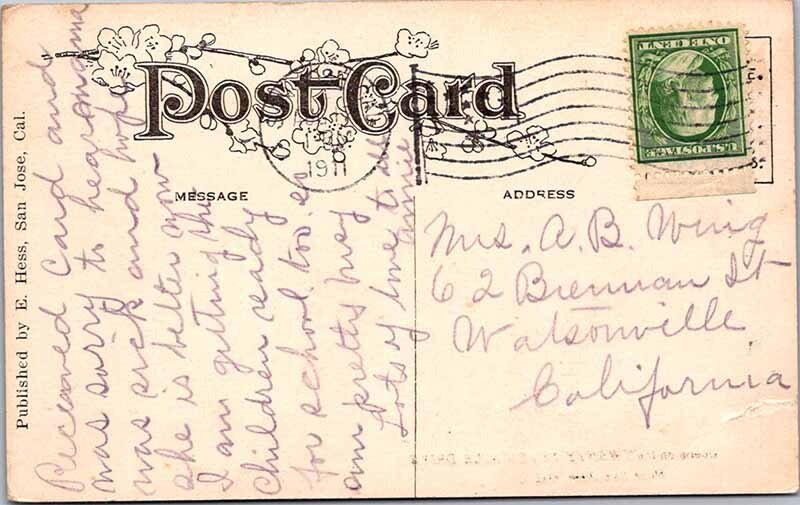 Post Card
1911
ONE CENT
U.S. POSTAGE
MESSAGE
ADDRESS
Published by E. Hess, San Jose, Cal.
Received Card and
was sorry to hear mama
was sick and hope
she is better now
I am getting the
children ready
for school too. so
am pretty busy
Lots of love to all
Annie
Mrs. A. B. Wing
62 Brennan St
Watsonville
California